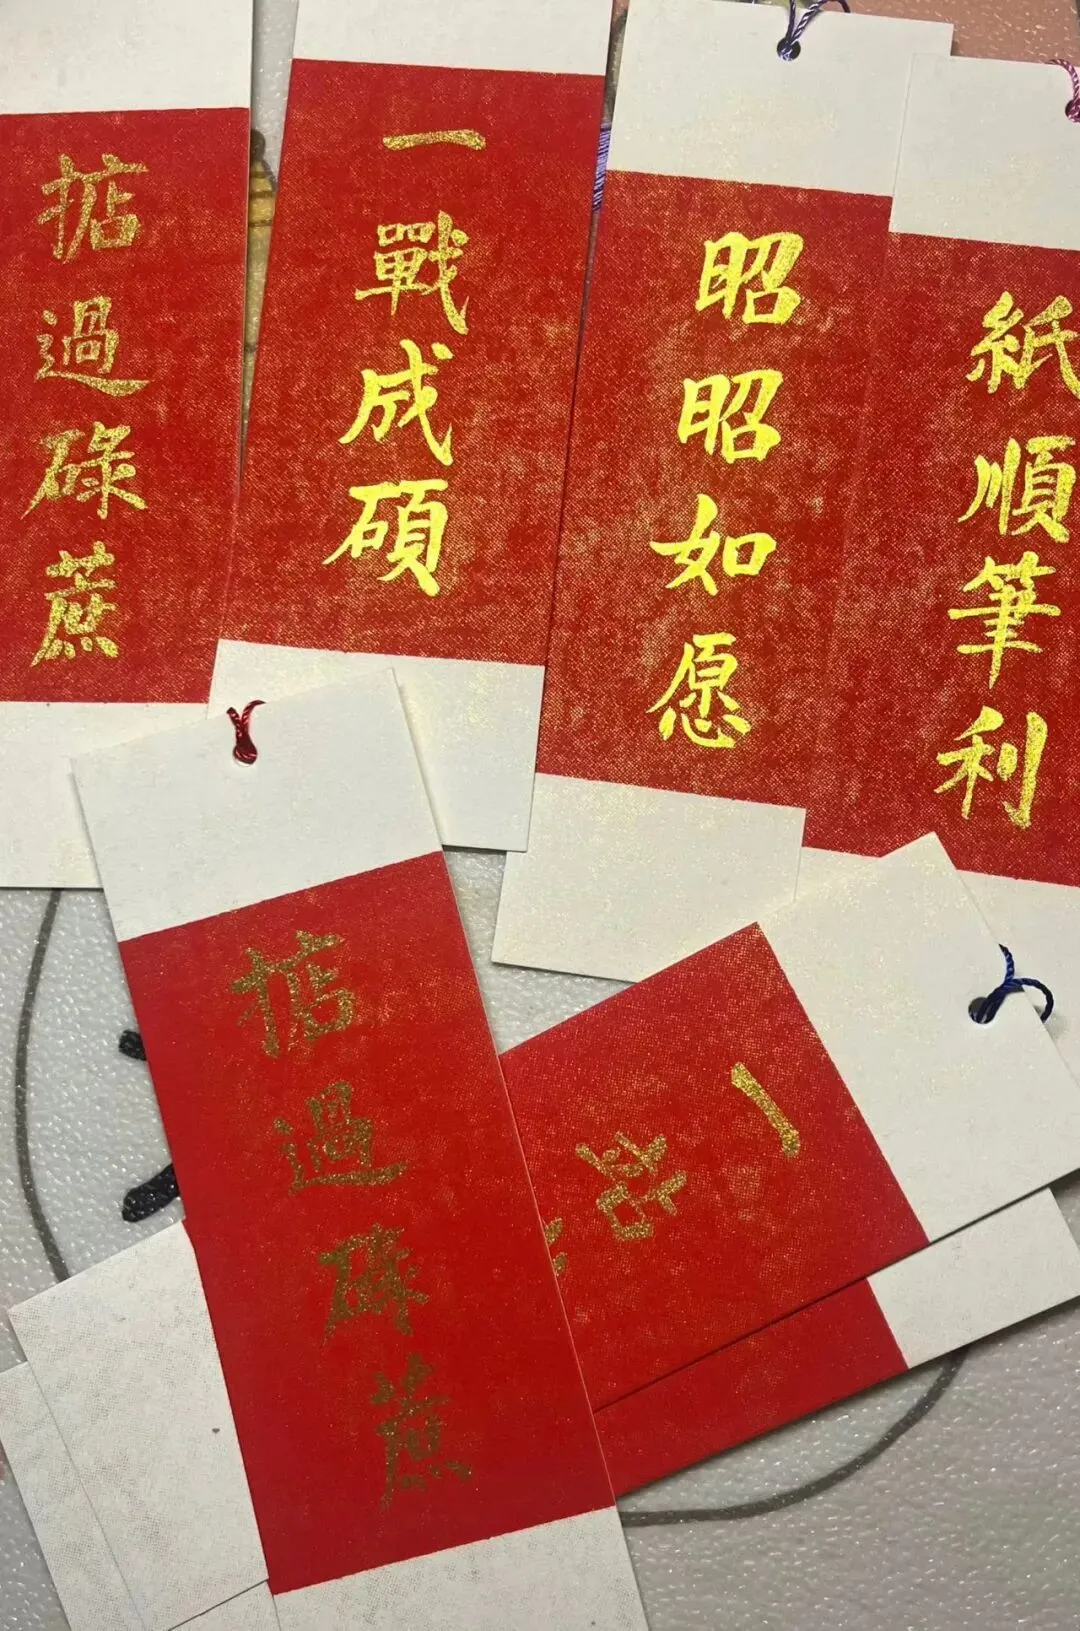 掂過碌蔗
一戰成碩
昭昭如愿
紙順筆利
掂過碌蔗
一